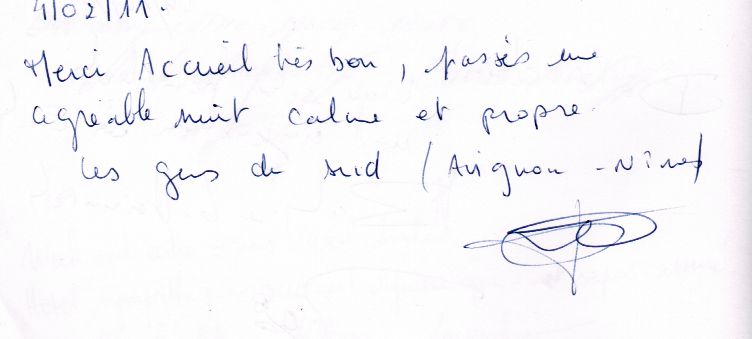 4/02/11.
Merci Accueil très bon, passés une
agréable nuit calme et propre.
Les gens du sud (Avignon - Nîmes)